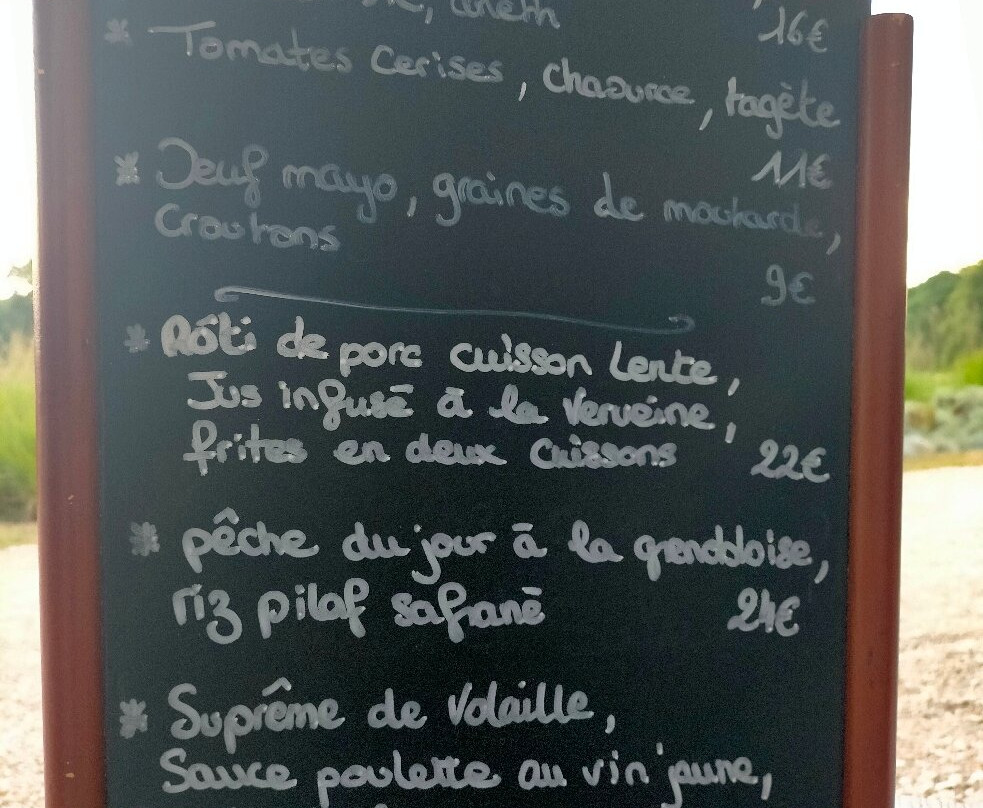 , aneth
16€
* Tomates Cerises, chaource, tagète
11€
* Oeuf mayo, graines de moutarde,
Croutons
9€
* Rôti de porc cuisson Lente,
Jus infusé à la Verveine,
frites en deux Cuissons 22€
* pêche du jour à la grenobloise,
riz pilaf safrané 24€
* Suprême de Volaille,
Sauce poulette au vin jaune,